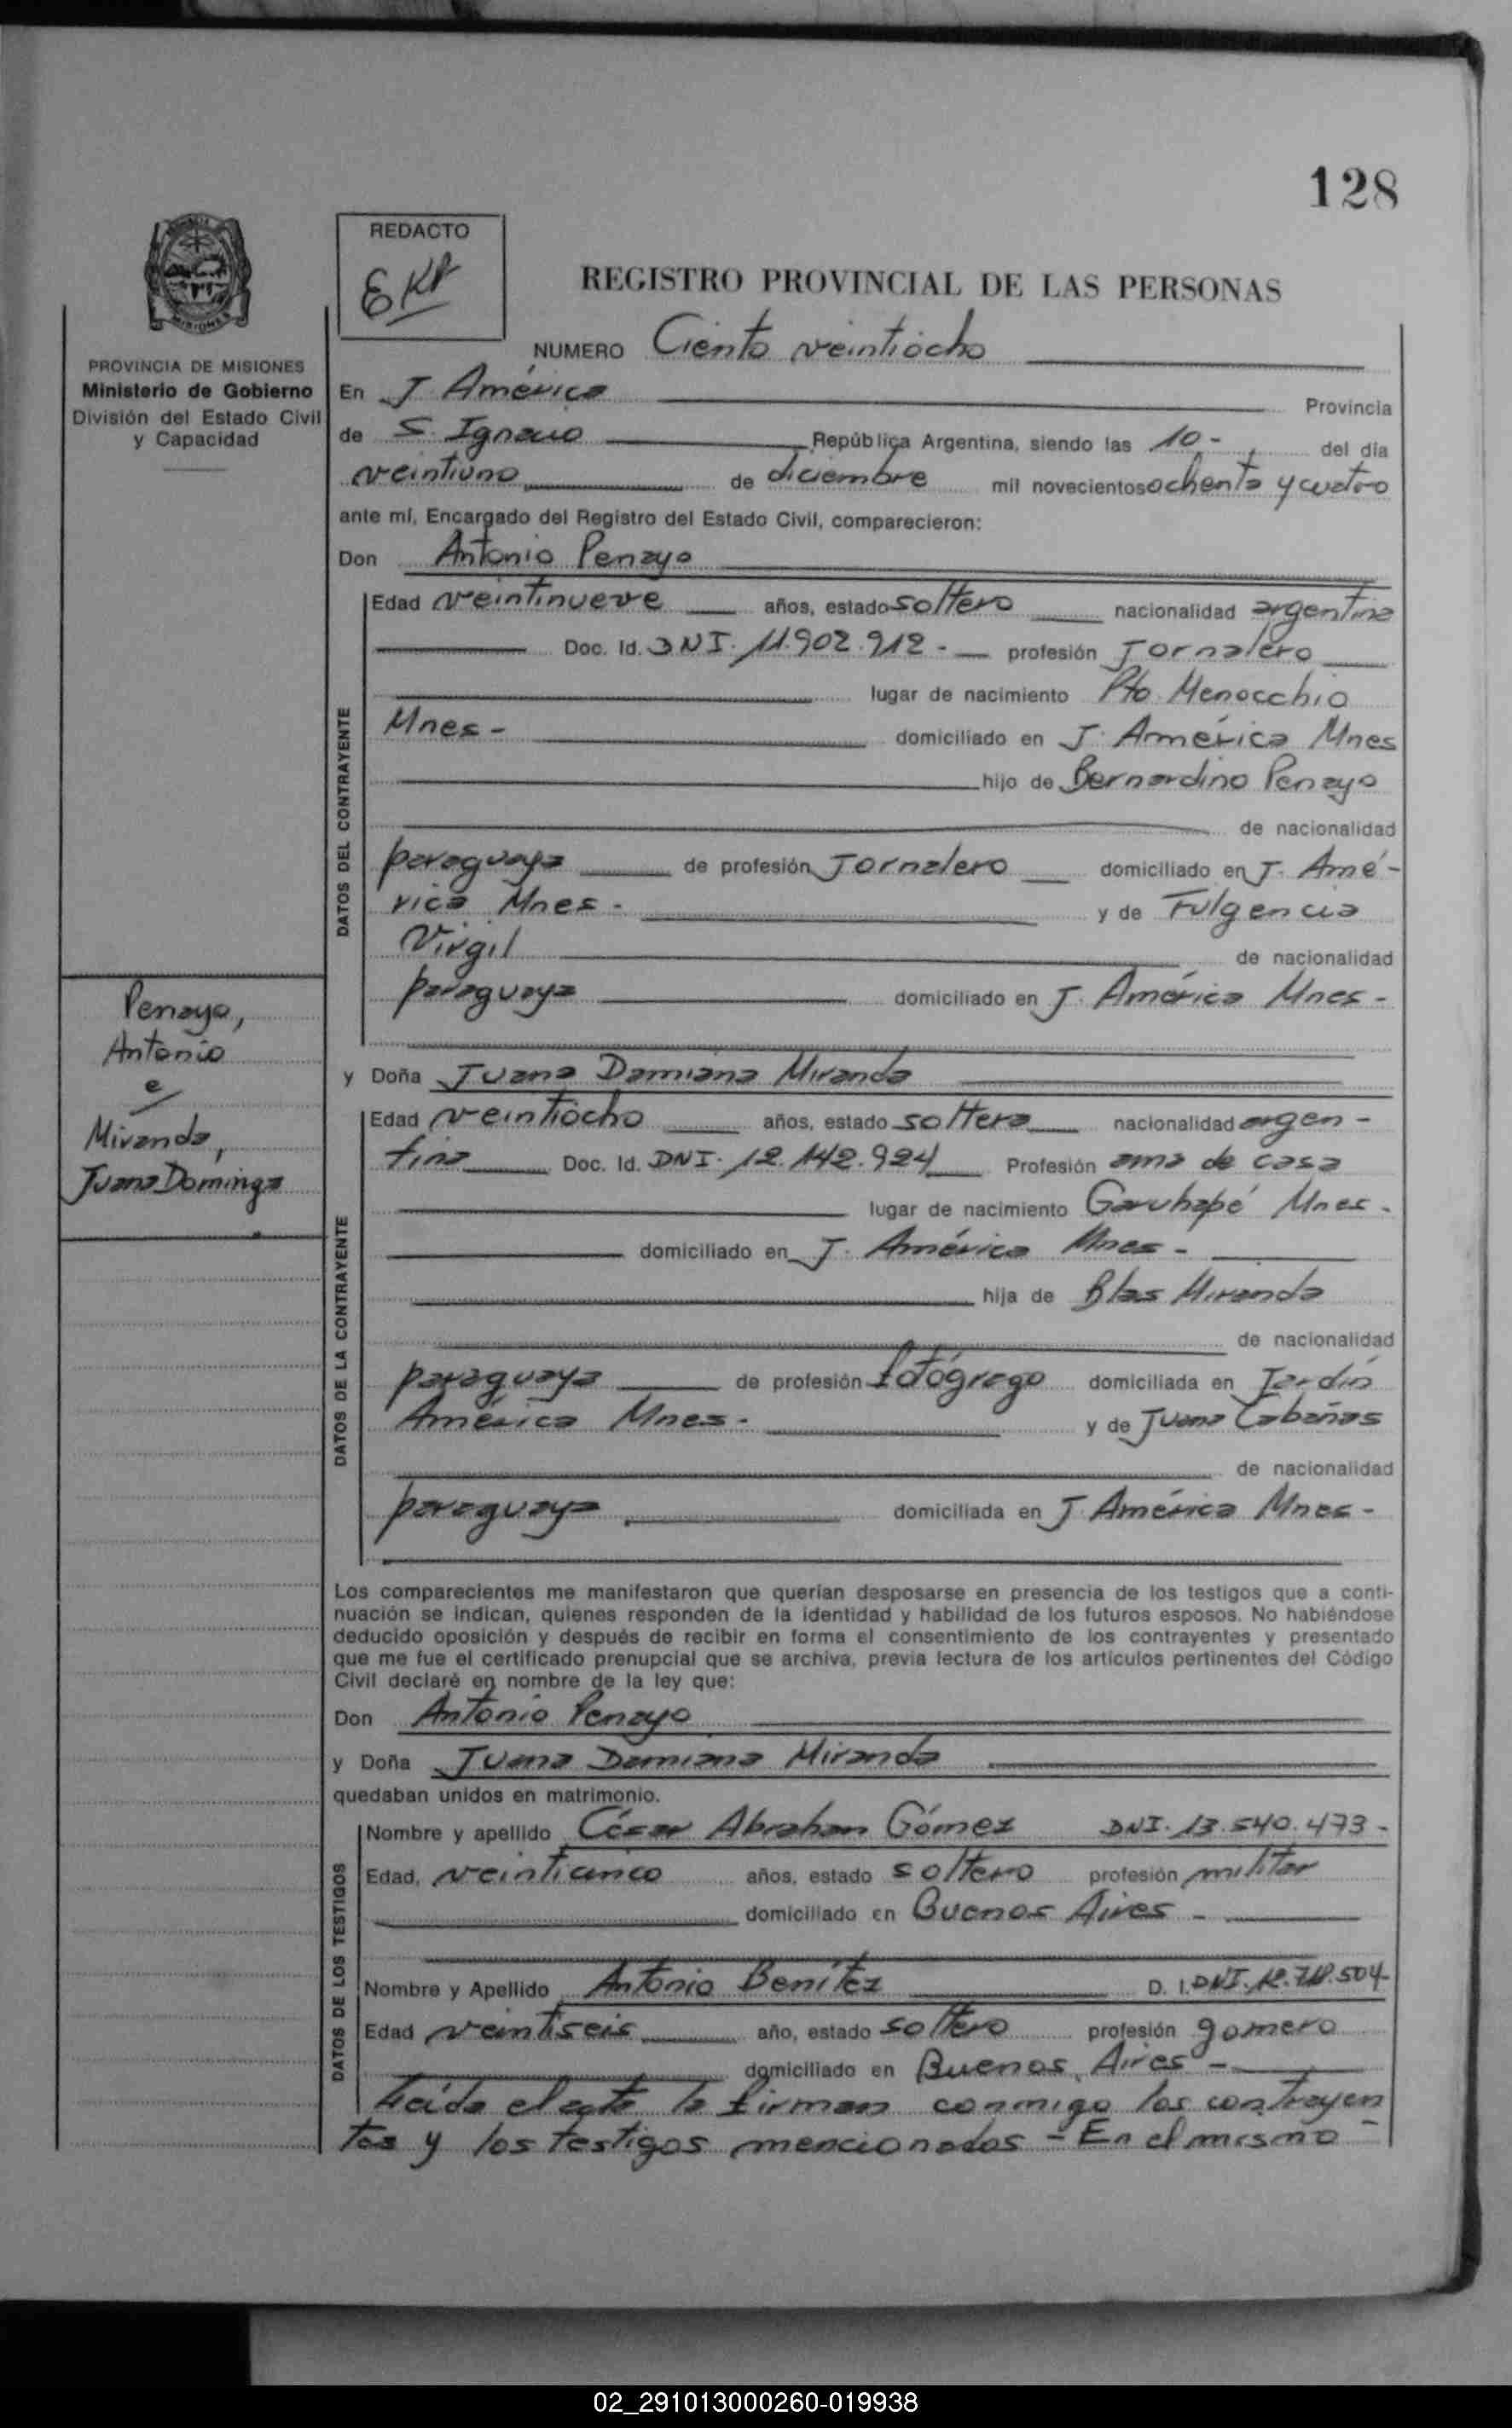 128
REDACTO
EKP
REGISTRO PROVINCIAL DE LAS PERSONAS
MISIONES
PROVINCIA DE MISIONES
Ministerio de Gobierno
División del Estado Civil
y Capacidad
NUMERO Ciento veintiocho
En J América Provincia
de S. Ignacio República Argentina, siendo las 10- del día
veintiuno de diciembre mil novecientos ochenta y cuatro
ante mí, Encargado del Registro del Estado Civil, comparecieron:
Don Antonio Penayo
DATOS DEL CONTRAYENTE
Edad veintinueve años, estado soltero nacionalidad argentina
Doc. Id. DNI. 11.902.912 - profesión Jornalero
lugar de nacimiento Pto Menocchio
Mnes - domiciliado en J. América Mnes
hijo de Bernardino Penayo
de nacionalidad
paraguaya de profesión Jornalero domiciliado en J. Amé-
rica Mnes - y de Fulgencia
Virgil de nacionalidad
paraguaya domiciliado en J. América Mnes -
Penayo,
Antonio
e
Miranda,
Juana Dominga
y Doña Juana Damiana Miranda
DATOS DE LA CONTRAYENTE
Edad veintiocho años, estado soltera nacionalidad argen-
tina Doc. Id. DNI. 12.142.924 Profesión ama de casa
lugar de nacimiento Garuhapé Mnes -
domiciliado en J. América Mnes -
hija de Blas Miranda
de nacionalidad
paraguaya de profesión fotógrego domiciliada en Jardín
América Mnes - y de Juana Cabañas
de nacionalidad
paraguaya domiciliada en J. América Mnes -
Los comparecientes me manifestaron que querían desposarse en presencia de los testigos que a conti-
nuación se indican, quienes responden de la identidad y habilidad de los futuros esposos. No habiéndose
deducido oposición y después de recibir en forma el consentimiento de los contrayentes y presentado
que me fue el certificado prenupcial que se archiva, previa lectura de los artículos pertinentes del Código
Civil declaré en nombre de la ley que:
Don Antonio Penayo
y Doña Juana Damiana Miranda
quedaban unidos en matrimonio.
DATOS DE LOS TESTIGOS
Nombre y apellido César Abrahan Gómez DNI. 13.540.473 -
Edad, veinticinco años, estado soltero profesión militar
domiciliado en Buenos Aires -
Nombre y Apellido Antonio Benítez D. I. DNI. 12.718.504-
Edad veintiseis año, estado soltero profesión gomero
domiciliado en Buenos Aires -
Leída el acta la firman conmigo los contrayen
tes y los testigos mencionados - En el mismo -
02_291013000260-019938